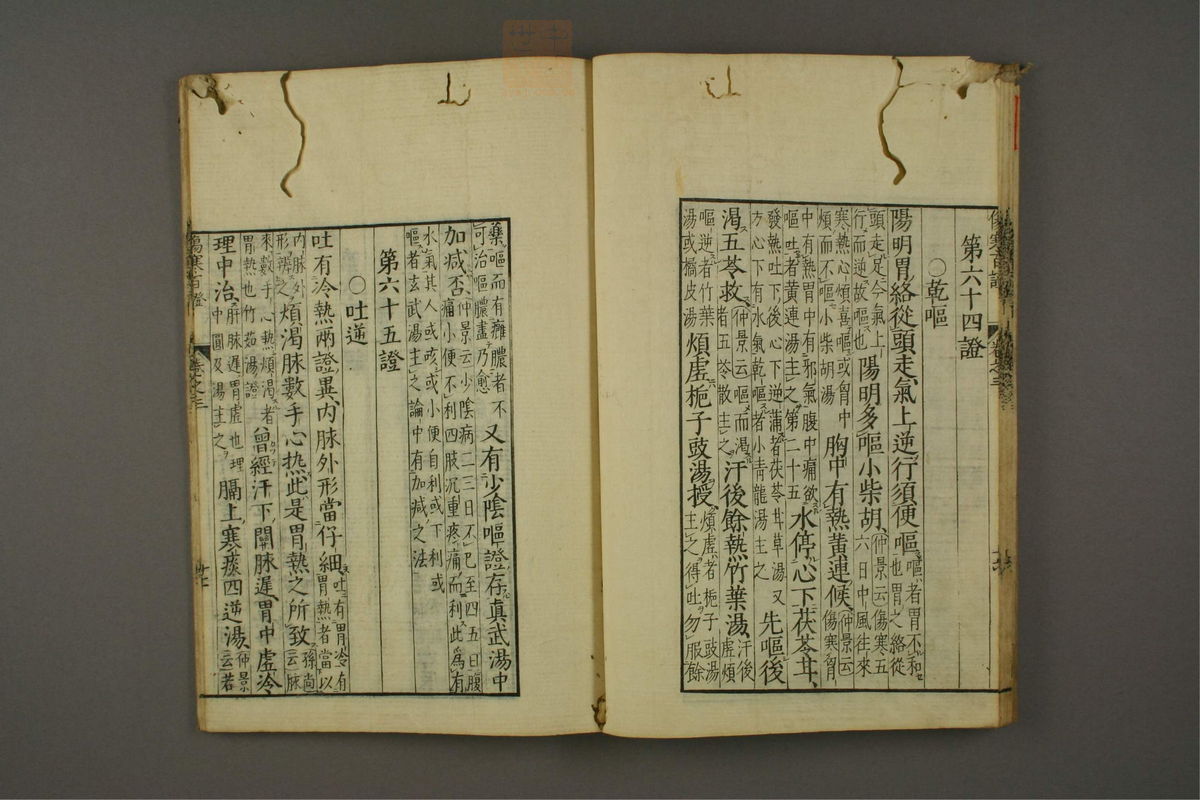 第六十四證
〇乾嘔
陽明胃絡從頭走氣上逆行須便嘔嘔者胃不和也胃之絡從
頭走足今氣上行而逆故嘔也陽明多嘔小柴胡仲景云傷寒五六日中風往來
寒熱心煩喜嘔或胷中煩而不嘔小柴胡湯胸中有熱黄連候仲景云傷寒胷
中有熱胃中有邪氣腹中痛欲嘔吐者黄連湯主之第二十五水停心下茯苓耳
發熱吐下後心下逆滿者茯苓甘草湯又方心下有水氣乾嘔者小青龍湯主之先嘔後
渴五苓救仲景云嘔而渴者五苓散主之汗後餘熱竹葉湯汗後虚煩
嘔逆者竹葉湯或橘皮湯煩虚梔子豉湯授煩虚者梔子豉湯主之得吐勿服餘
藥嘔而有癰膿者不可治嘔膿盡乃愈又有少陰嘔證存真武湯中
加減否仲景云少陰病二三日不已至四五日腹痛小便不利四肢沉重疼痛而利此為有
水氣其人或咳或小便自利或下利或嘔者玄武湯主之論中有加減之法
第六十五證
〇吐逆
吐有冷熱兩證異内脉外形當仔細吐有胃冷有胃熱者當以
内脉外形辨之煩渴脉數手心热此是胃熱之所致孫尚云脉
來數手心熱煩渴者胃熱也竹茹湯證曾經汗下關脉遲胃中虚冷
理中治關脉遲胃虚也理中圓及湯主之膈上寒痰四逆湯仲景云若
傷寒百證
卷之三